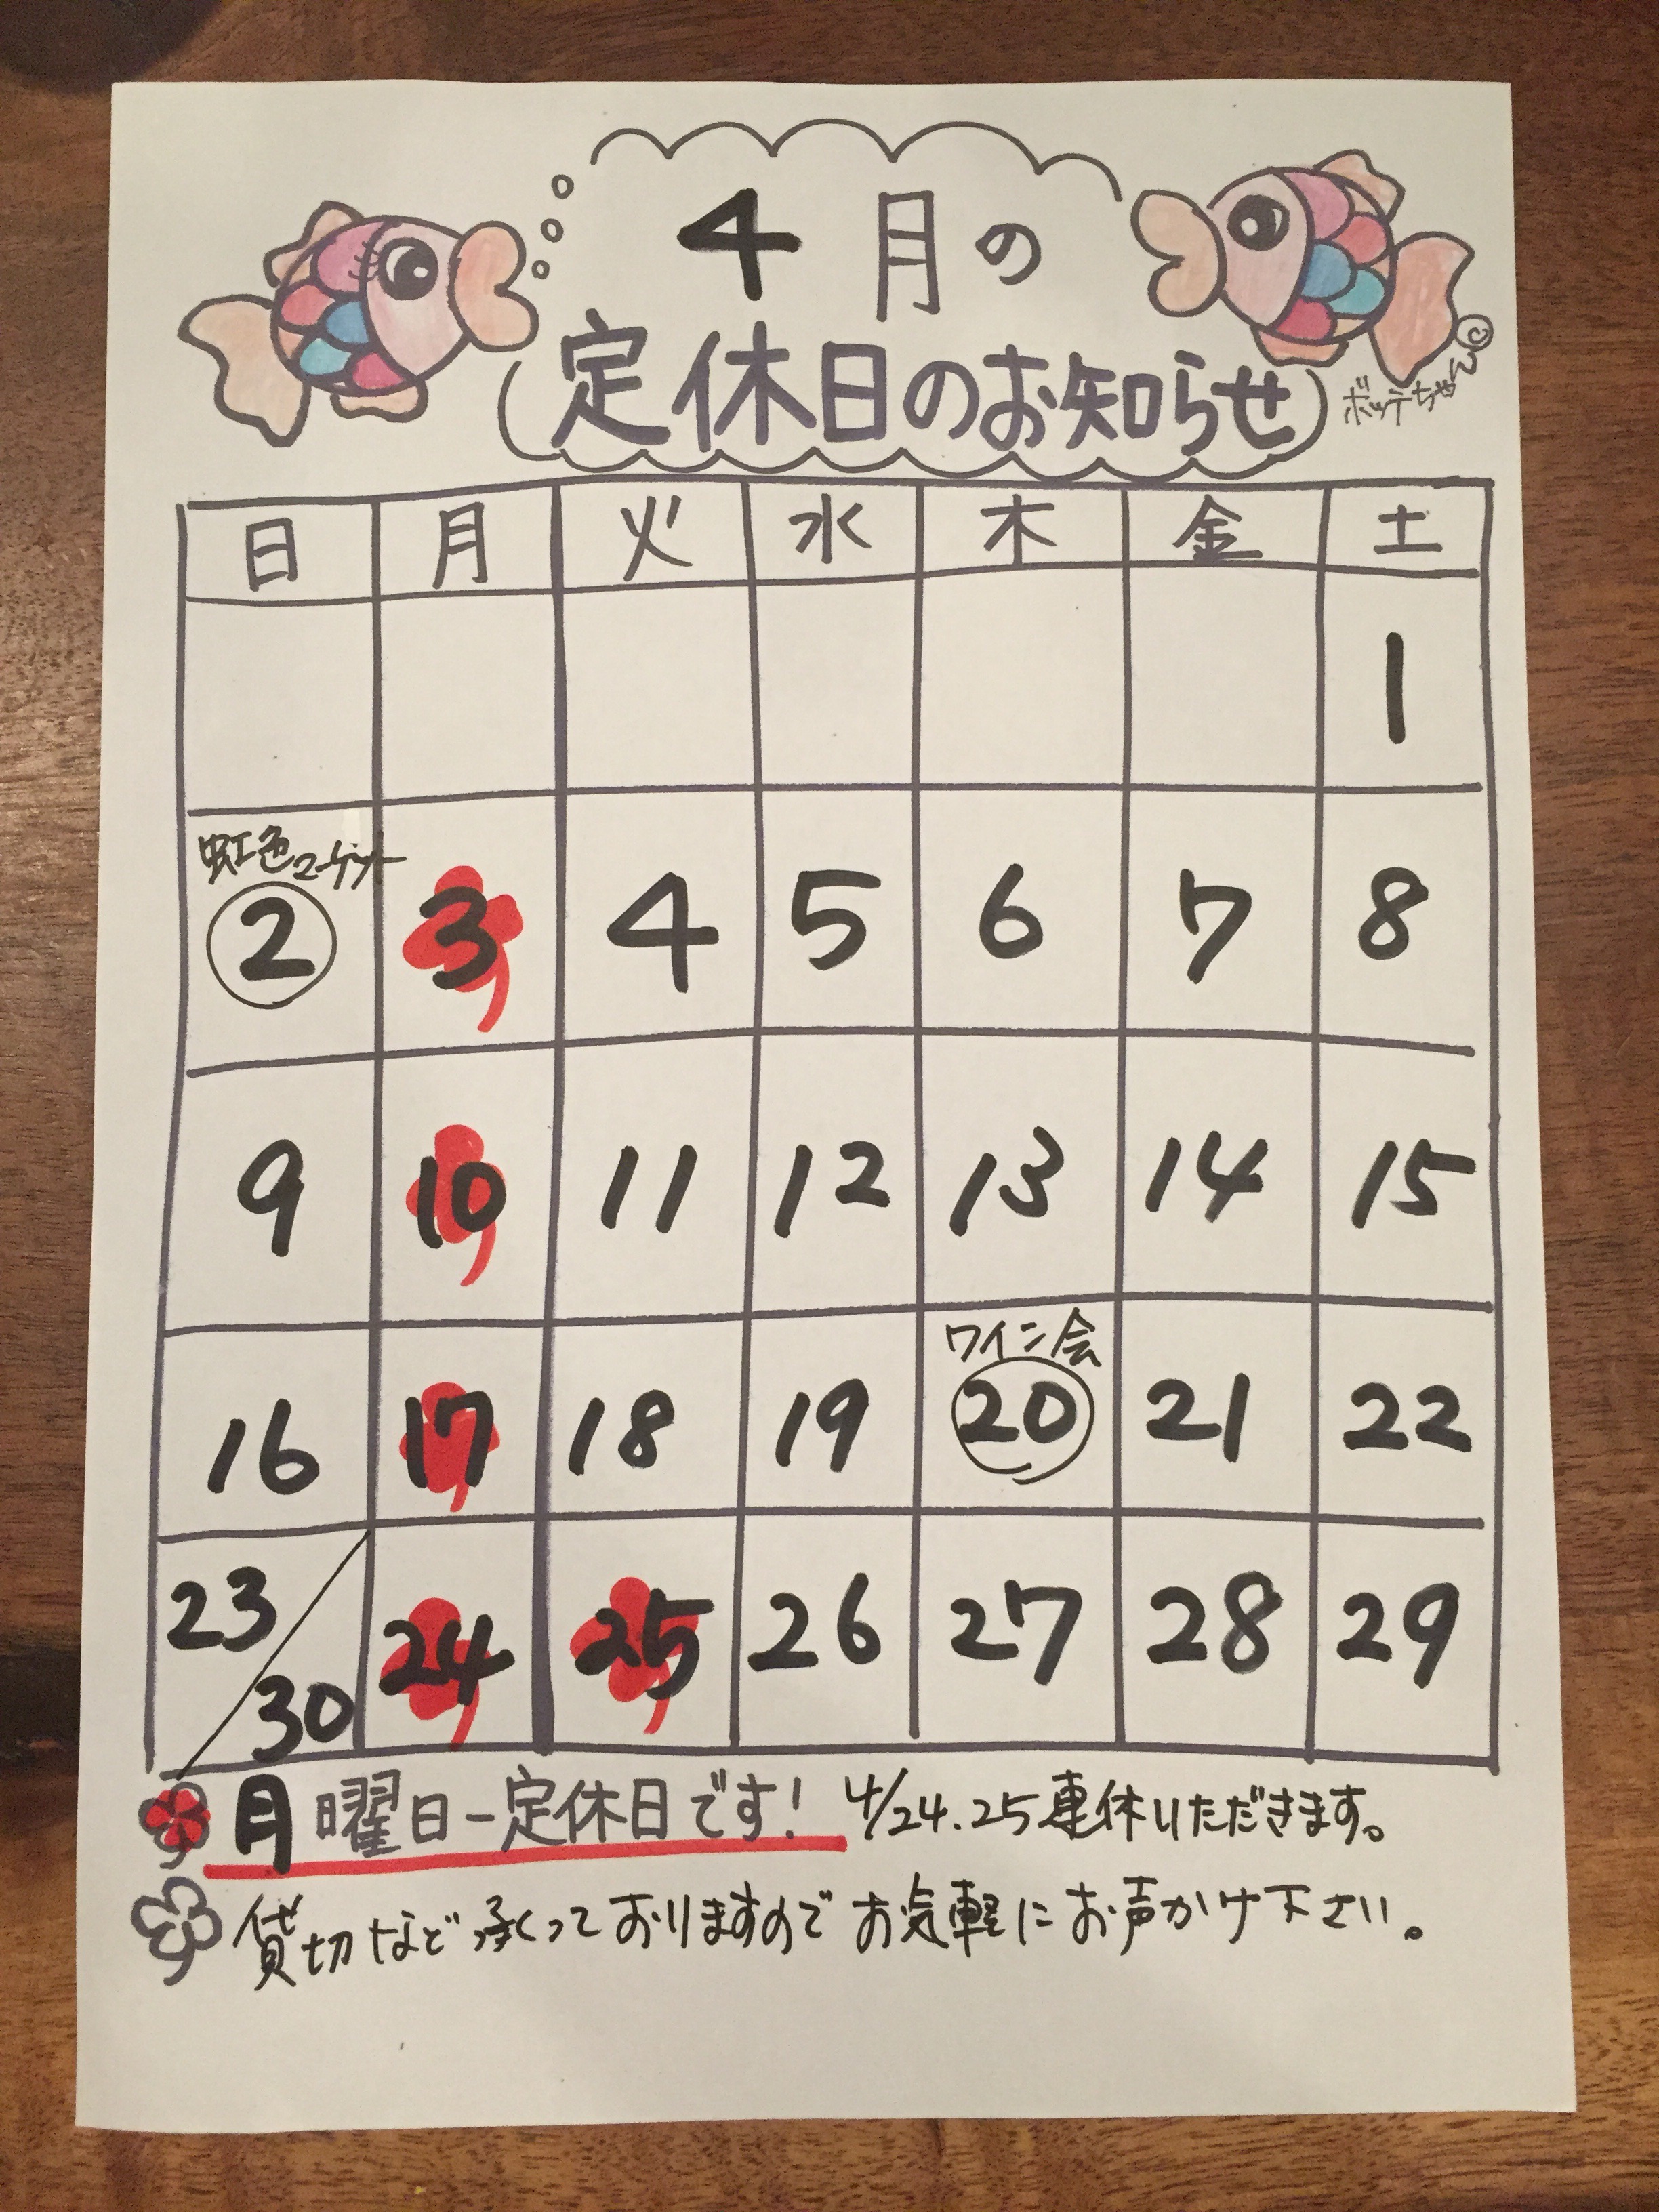 4月の
定休日のお知らせ
©
ボッテちゃん
日 月 火 水 木 金 土
1
虹色マーケット
2 3 4 5 6 7 8
9 10 11 12 13 14 15
ワイン会
16 17 18 19 20 21 22
23 24 25 26 27 28 29
30
月曜日－定休日です! 4/24.25連休いただきます。
貸切など承っておりますのでお気軽にお声かけ下さい。